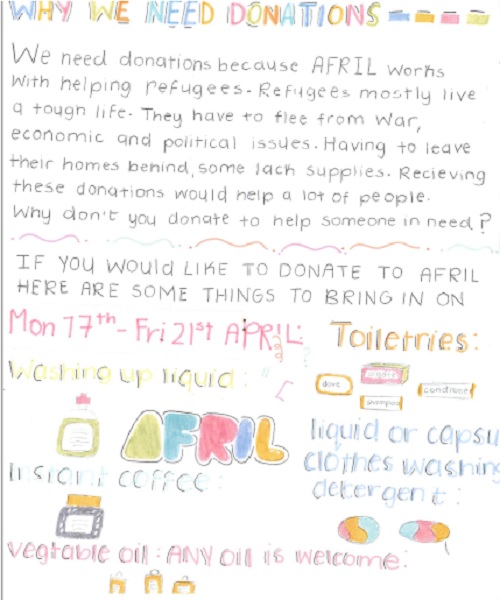 WHY WE NEED DONATIONS
We need donations because AFRIL works
with helping refugees. Refugees mostly live
a tough life. They have to flee from war,
economic and political issues. Having to leave
their homes behind, some lack supplies. Recieving
these donations would help a lot of people.
Why don't you donate to help someone in need?
IF YOU Would LIKE TO DONATE TO AFRIL
HERE ARE SOME THINGS TO BRING IN ON
Mon 17th - Fri 21st APRIL:
Toiletries:
Washing up liquid:
dove
shampoo
AFRIL
liquid or capsu
clothes washing
detergent:
Instant coffee:
vegtable oil: ANY oil is welcome: